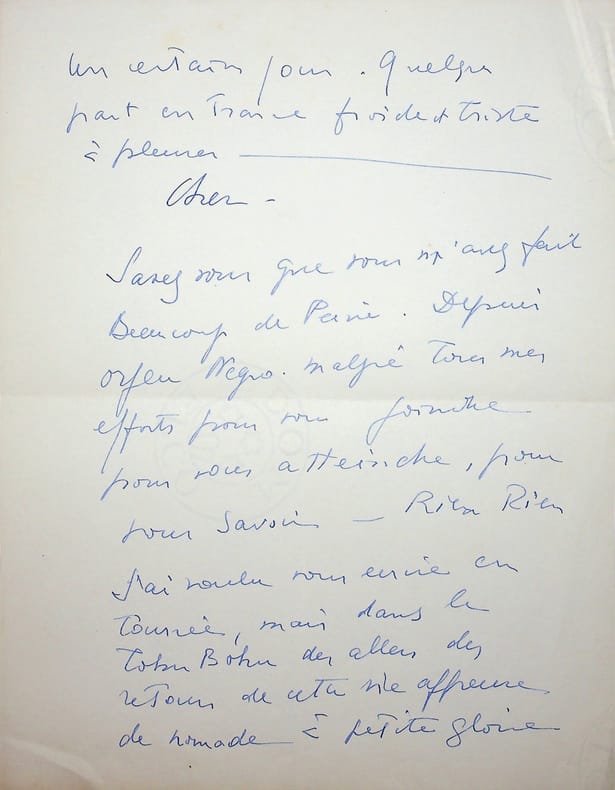 Un certain jour. Quelque
part en France froide et triste
à pleurer
Cher -
Savez vous que vous m'avez fait
Beaucoup de Peine. Depuis
orfeu Negro. malgré tous mes
efforts pour vous joindre
pour vous atteindre, pour
vous savoir — Rien Rien
J'ai voulu vous ecrire en
Tournée, mais dans le
Tohu Bohu des allers des
retours de cette vie affreuse
de nomade à petite gloire